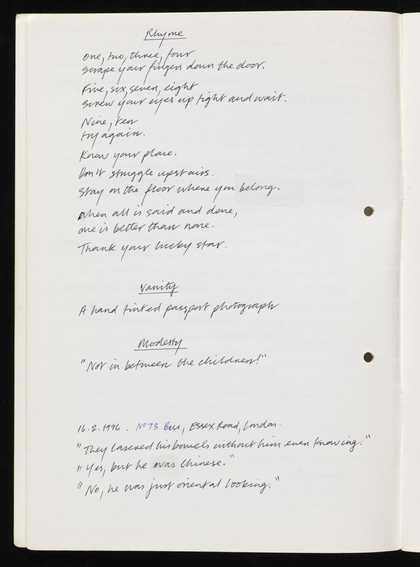 Rhyme
One, two, three, four
Scrape your fingers down the door.
Five, six, seven, eight
Screw your eyes up tight and wait.
Nine, ten
try again.
Know your place.
Don't struggle upstairs.
Stay on the floor where you belong.
When all is said and done,
one is better than none.
Thank your lucky star.
Vanity
A hand tinted passport photograph
Modesty
"Not in between the children!"
16.2.1996. No 73 Bus, Essex Road, London.
"They lasered his bowels without him even knowing."
"Yes, but he was Chinese."
"No, he was just oriental looking."